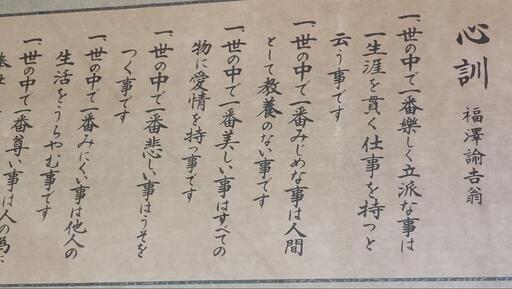 心訓
福澤諭吉翁
一、世の中で一番樂しく立派な事は
一生涯を貫く仕事を持つと
云う事です
一、世の中で一番みじめな事は人間
として教養のない事です
一、世の中で一番美しい事はすべての
物に愛情を持つ事です
一、世の中で一番悲しい事はうそを
つく事です
一、世の中で一番みにくい事は他人の
生活をうらやむ事です
一、世の中で一番尊い事は人の為に